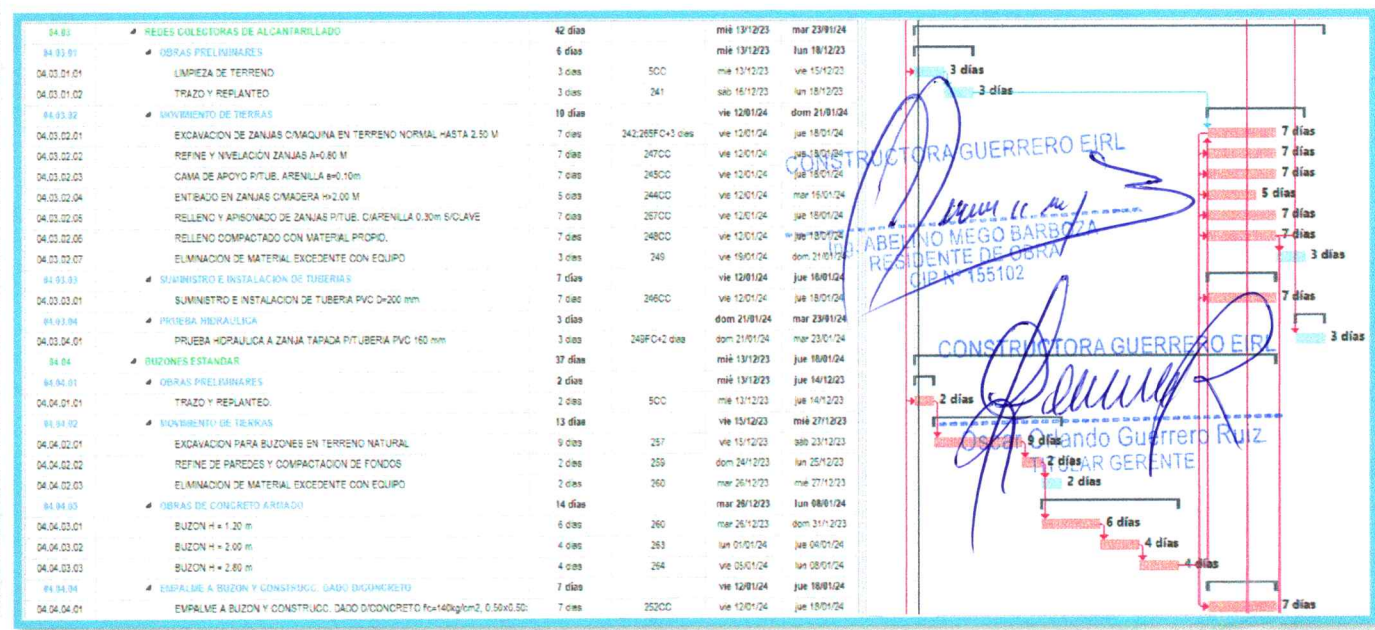 04.03 REDES COLECTORAS DE ALCANTARILLADO 42 días mié 13/12/23 mar 23/01/24
04.03.01 OBRAS PRELIMINARES 6 días mié 13/12/23 lun 18/12/23
04.03.01.01 LIMPIEZA DE TERRENO 3 días 5CC mié 13/12/23 vie 15/12/23 3 días
04.03.01.02 TRAZO Y REPLANTEO 3 días 241 sáb 16/12/23 lun 18/12/23 3 días
04.03.02 MOVIMIENTO DE TIERRAS 10 días vie 12/01/24 dom 21/01/24
04.03.02.01 EXCAVACION DE ZANJAS C/MAQUINA EN TERRENO NORMAL HASTA 2.50 M 7 días 242;265FC+3 días vie 12/01/24 jue 18/01/24 7 días
04.03.02.02 REFINE Y NIVELACIÓN ZANJAS A=0.80 M 7 días 247CC vie 12/01/24 jue 18/01/24 7 días
04.03.02.03 CAMA DE APOYO P/TUB. ARENILLA e=0.10m 7 días 245CC vie 12/01/24 jue 18/01/24 7 días
04.03.02.04 ENTIBADO EN ZANJAS C/MADERA H>2.00 M 5 días 244CC vie 12/01/24 mar 16/01/24 5 días
04.03.02.05 RELLENO Y APISONADO DE ZANJAS P/TUB. C/ARENILLA 0.30m S/CLAVE 7 días 257CC vie 12/01/24 jue 18/01/24 7 días
04.03.02.06 RELLENO COMPACTADO CON MATERIAL PROPIO. 7 días 248CC vie 12/01/24 jue 18/01/24 7 días
04.03.02.07 ELIMINACION DE MATERIAL EXCEDENTE CON EQUIPO 3 días 249 vie 19/01/24 dom 21/01/24 3 días
04.03.03 SUMINISTRO E INSTALACION DE TUBERIAS 7 días vie 12/01/24 jue 18/01/24
04.03.03.01 SUMINISTRO E INSTALACION DE TUBERIA PVC D=200 mm 7 días 246CC vie 12/01/24 jue 18/01/24 7 días
04.03.04 PRUEBA HIDRAULICA 3 días dom 21/01/24 mar 23/01/24
04.03.04.01 PRUEBA HIDRAULICA A ZANJA TAPADA P/TUBERIA PVC 160 mm 3 días 249FC+2 días dom 21/01/24 mar 23/01/24 3 días
04.04 BUZONES ESTANDAR 37 días mié 13/12/23 jue 18/01/24
04.04.01 OBRAS PRELIMINARES 2 días mié 13/12/23 jue 14/12/23
04.04.01.01 TRAZO Y REPLANTEO. 2 días 5CC mié 13/12/23 jue 14/12/23 2 días
04.04.02 MOVIMIENTO DE TIERRAS 13 días vie 15/12/23 mié 27/12/23
04.04.02.01 EXCAVACION PARA BUZONES EN TERRENO NATURAL 9 días 257 vie 15/12/23 sáb 23/12/23 9 días
04.04.02.02 REFINE DE PAREDES Y COMPACTACION DE FONDOS 2 días 259 dom 24/12/23 lun 25/12/23 2 días
04.04.02.03 ELIMINACION DE MATERIAL EXCEDENTE CON EQUIPO 2 días 260 mar 26/12/23 mié 27/12/23 2 días
04.04.03 OBRAS DE CONCRETO ARMADO 14 días mar 26/12/23 lun 08/01/24
04.04.03.01 BUZON H = 1.20 m 6 días 260 mar 26/12/23 dom 31/12/23 6 días
04.04.03.02 BUZON H = 2.00 m 4 días 263 lun 01/01/24 jue 04/01/24 4 días
04.04.03.03 BUZON H = 2.80 m 4 días 264 vie 05/01/24 lun 08/01/24 4 días
04.04.04 EMPALME A BUZON Y CONSTRUCC. DADO D/CONCRETO 7 días vie 12/01/24 jue 18/01/24
04.04.04.01 EMPALME A BUZON Y CONSTRUCC. DADO D/CONCRETO fc=140kg/cm2, 0.50x0.50: 7 días 252CC vie 12/01/24 jue 18/01/24 7 días
CONSTRUCTORA GUERRERO EIRL
Ing. ABELINO MEGO BARBOZA
RESIDENTE DE OBRA
CIP N° 155102
CONSTRUCTORA GUERRERO EIRL
Oscar Orlando Guerrero Ruiz
TITULAR GERENTE